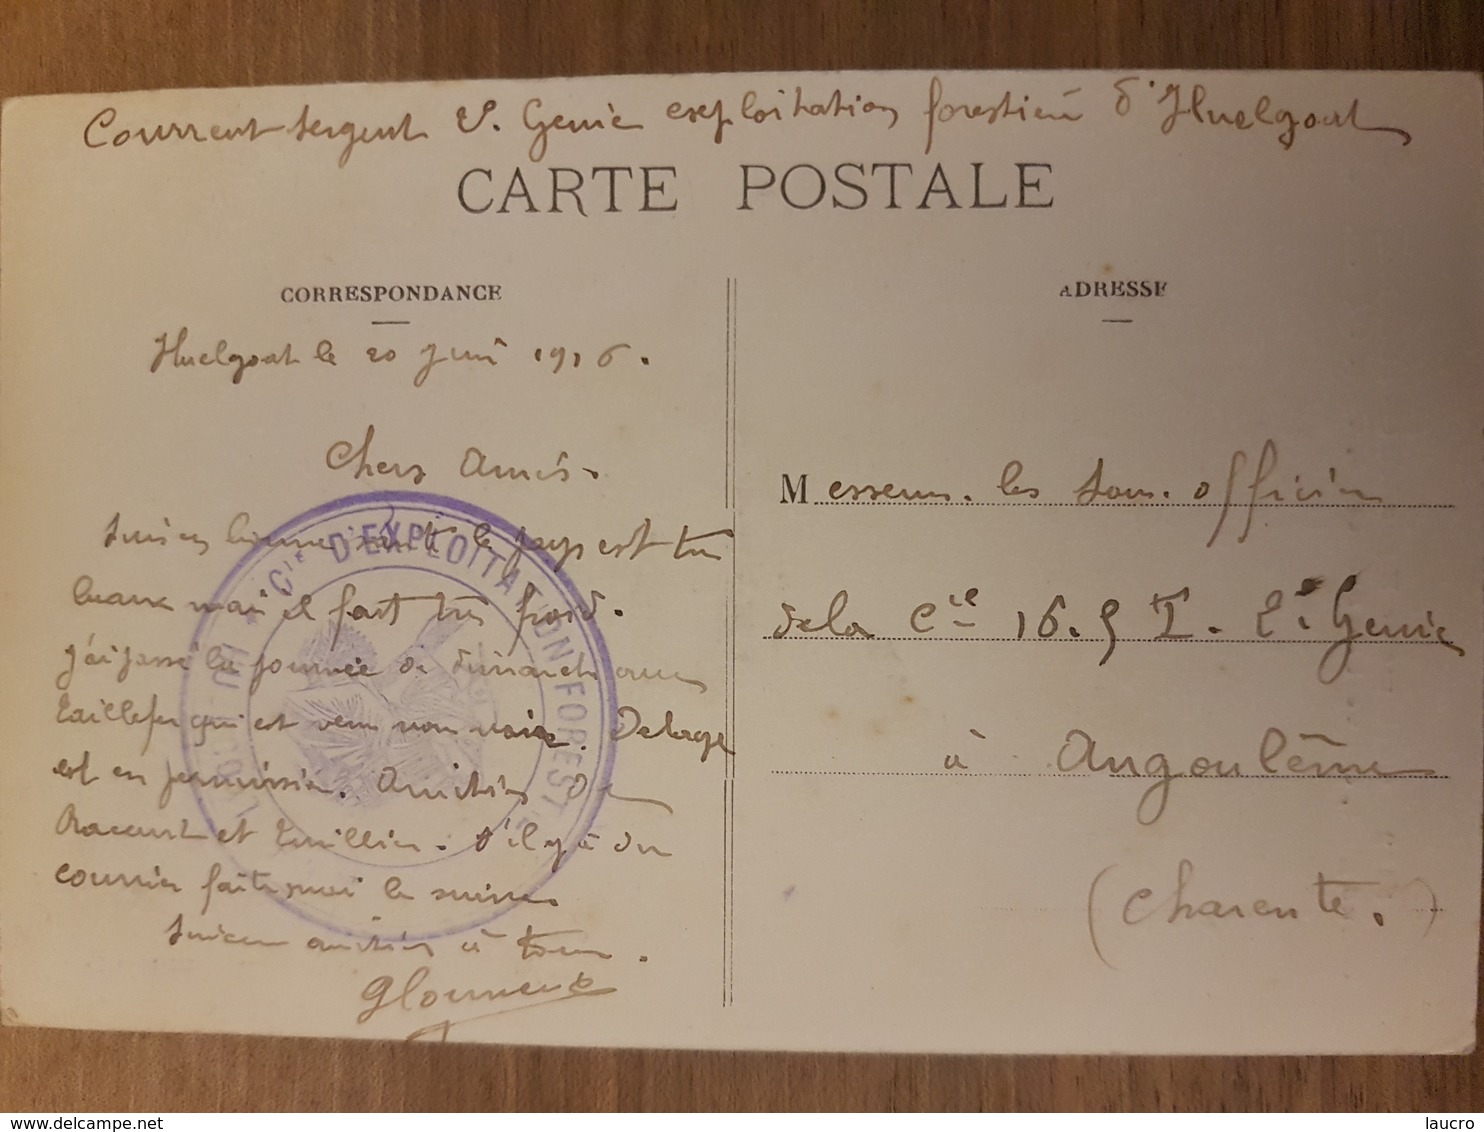 Courrent sergent 2e. Genie exploitation forestière d'Huelgoat
CARTE POSTALE
CORRESPONDANCE
ADRESSE
Huelgoat le 20 Juin 1916.
Chers Amis.
Suis en bonne santé le pays est très
beaux mais il fait très froid.
J'ai passé la journée de dimanche avec
Taillefer qui est venu nous voir. Delage
est en permission. Amitiés de
et . S'il y à du
courrier faites moi le suivre
Sincères amitiés à tous.
GCourrent
Messieurs les Sous-officiers
de la Cie 16.5 T. 2e Genie
à Angoulême
(Charente.)
Cie D'EXPLOITATION FOREST
delcampe.net
laucro